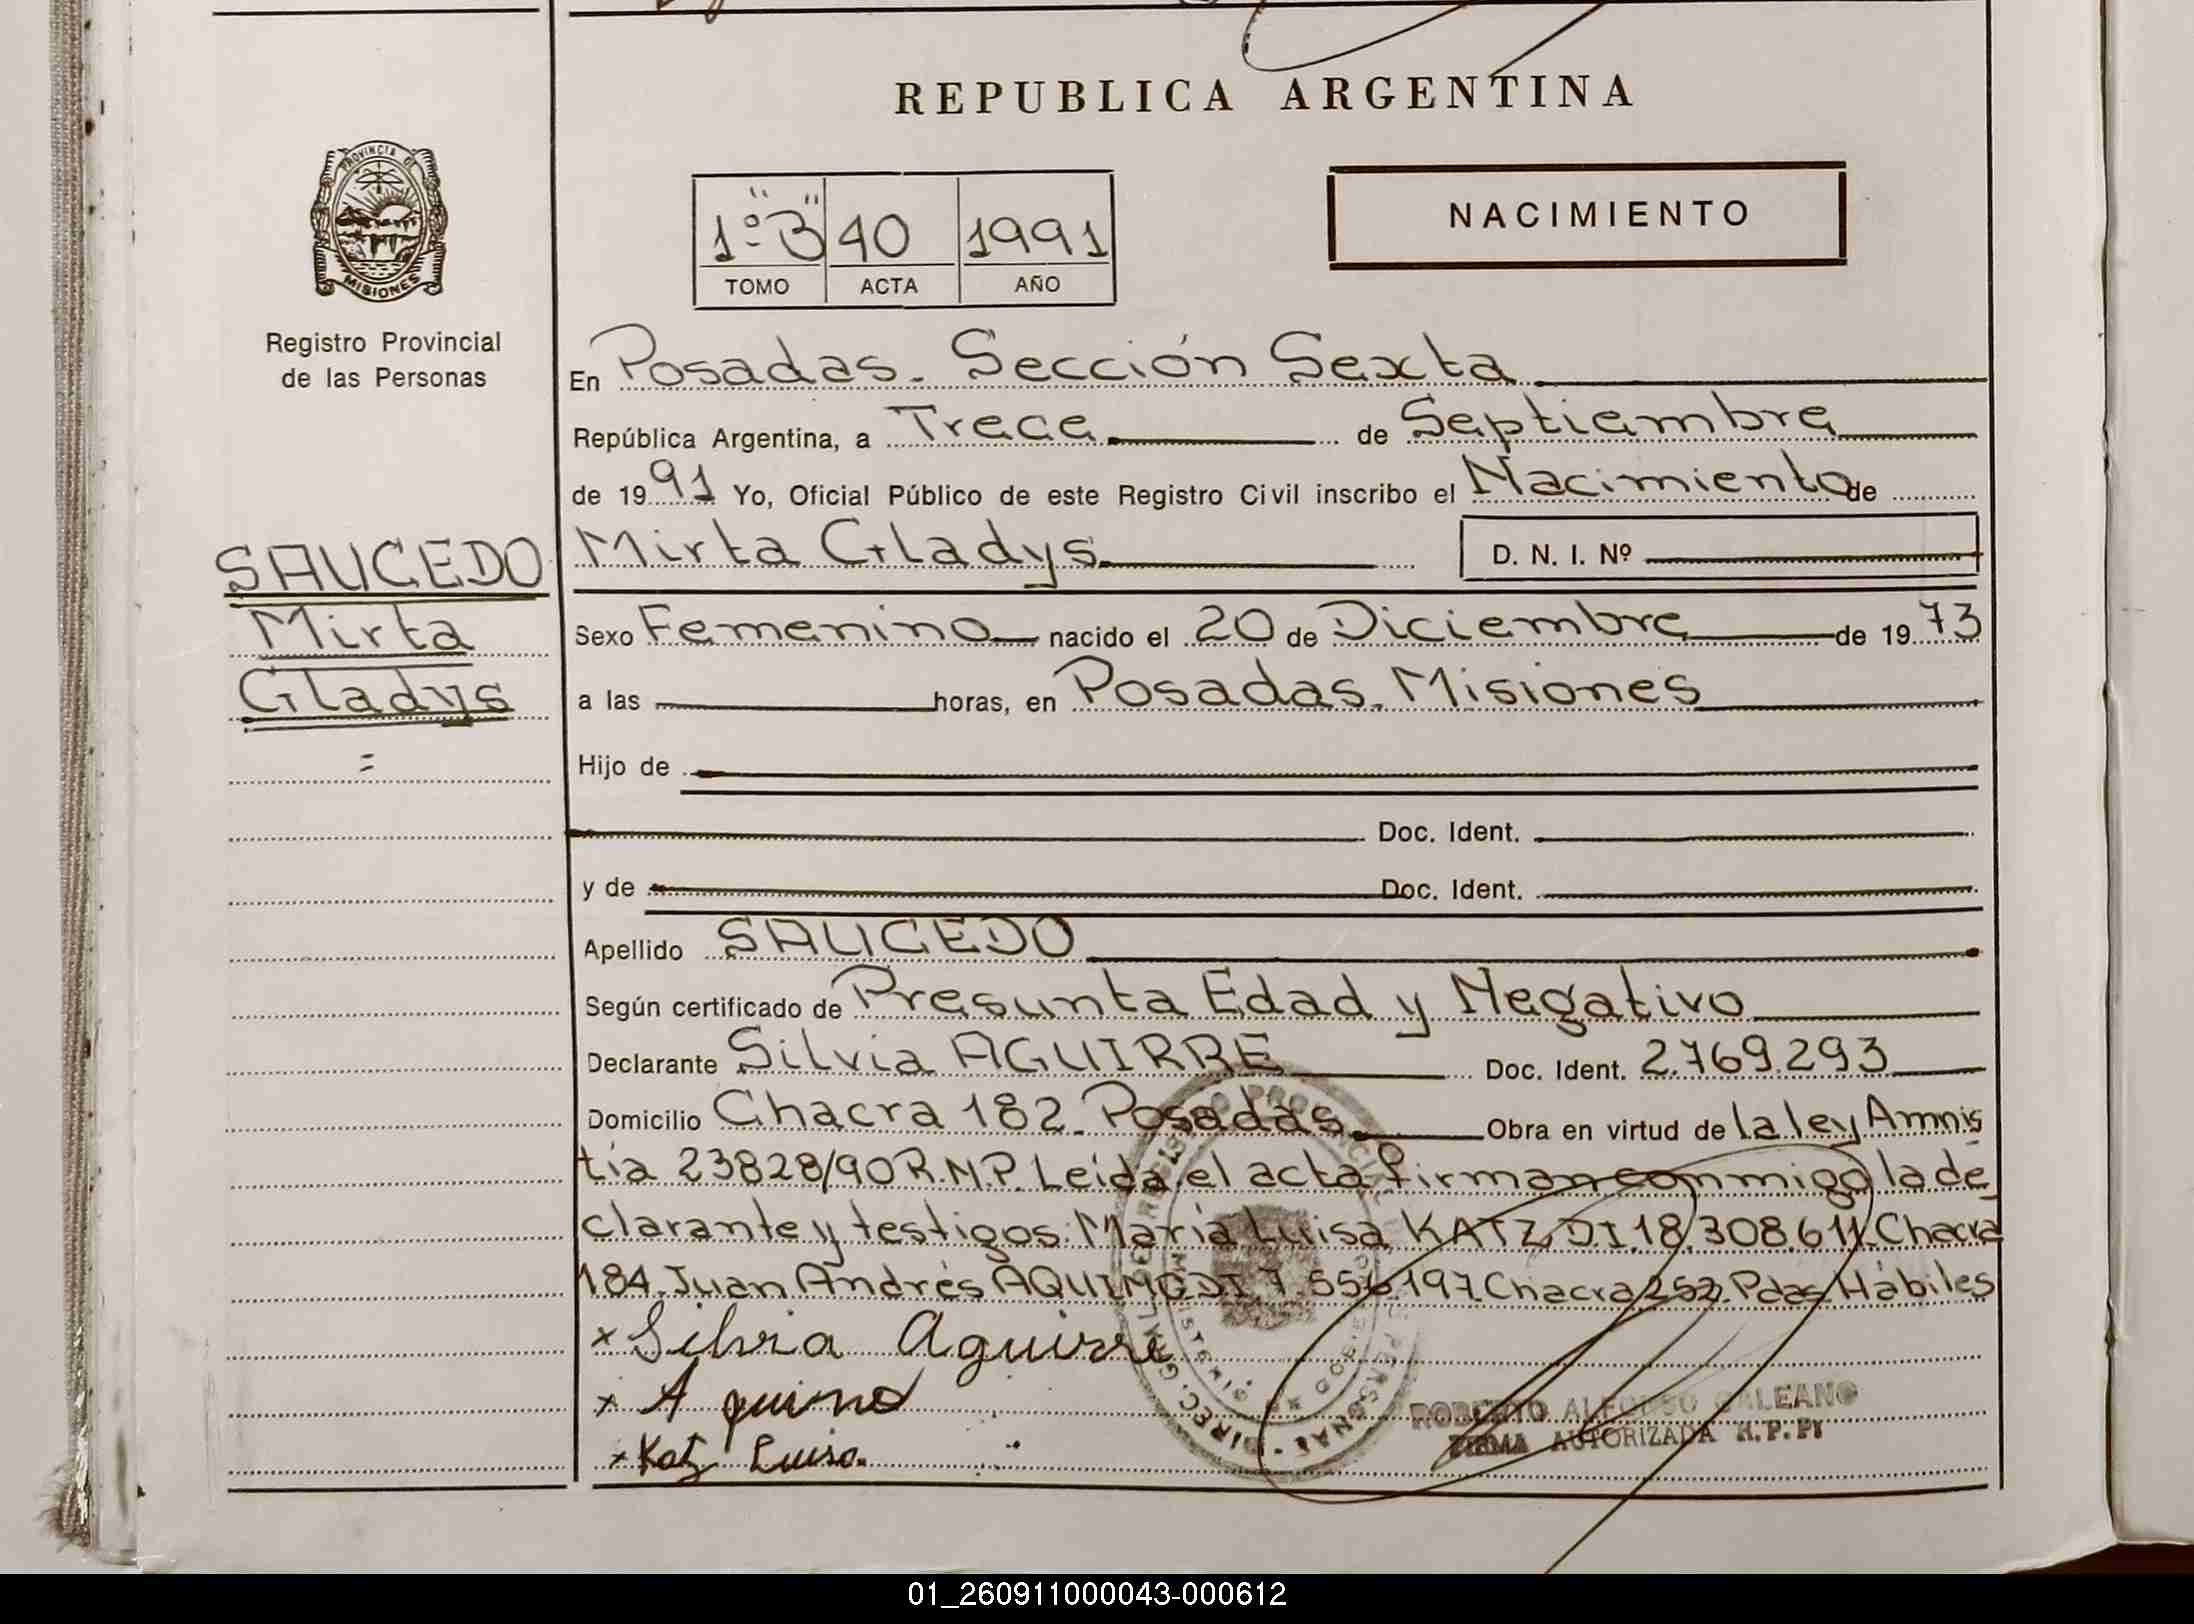 REPUBLICA ARGENTINA
PROVINCIA DE
MISIONES
Registro Provincial
de las Personas
1º "B" 40 1991
TOMO ACTA AÑO
NACIMIENTO
En Posadas. Sección Sexta
República Argentina, a Trece de Septiembre
de 1991 Yo, Oficial Público de este Registro Civil inscribo el Nacimiento de
SAUCEDO
Mirta
Gladys
=
Mirta Gladys
D. N. I. Nº
Sexo Femenino nacido el 20 de Diciembre de 1973
a las horas, en Posadas. Misiones
Hijo de
Doc. Ident.
y de Doc. Ident.
Apellido SAUCEDO
Según certificado de Presunta Edad y Negativo
Declarante Silvia AGUIRRE Doc. Ident. 2.769.293
Domicilio Chacra 182. Posadas Obra en virtud de la ley Amnis
tía 23828/90 R.N.P. Leída el acta firman conmigo la de
clarante y testigos: María Luisa KATZ DI. 18.308.611. Chacra
184. Juan Andrés AQUINO DI. 7.556.197. Chacra 252. Pdas Hábiles
x Silvia Aguirre
x Aquino
x Katz Luisa.
ROBERTO ALFONSO GALEANO
FIRMA AUTORIZADA
01_260911000043-000612